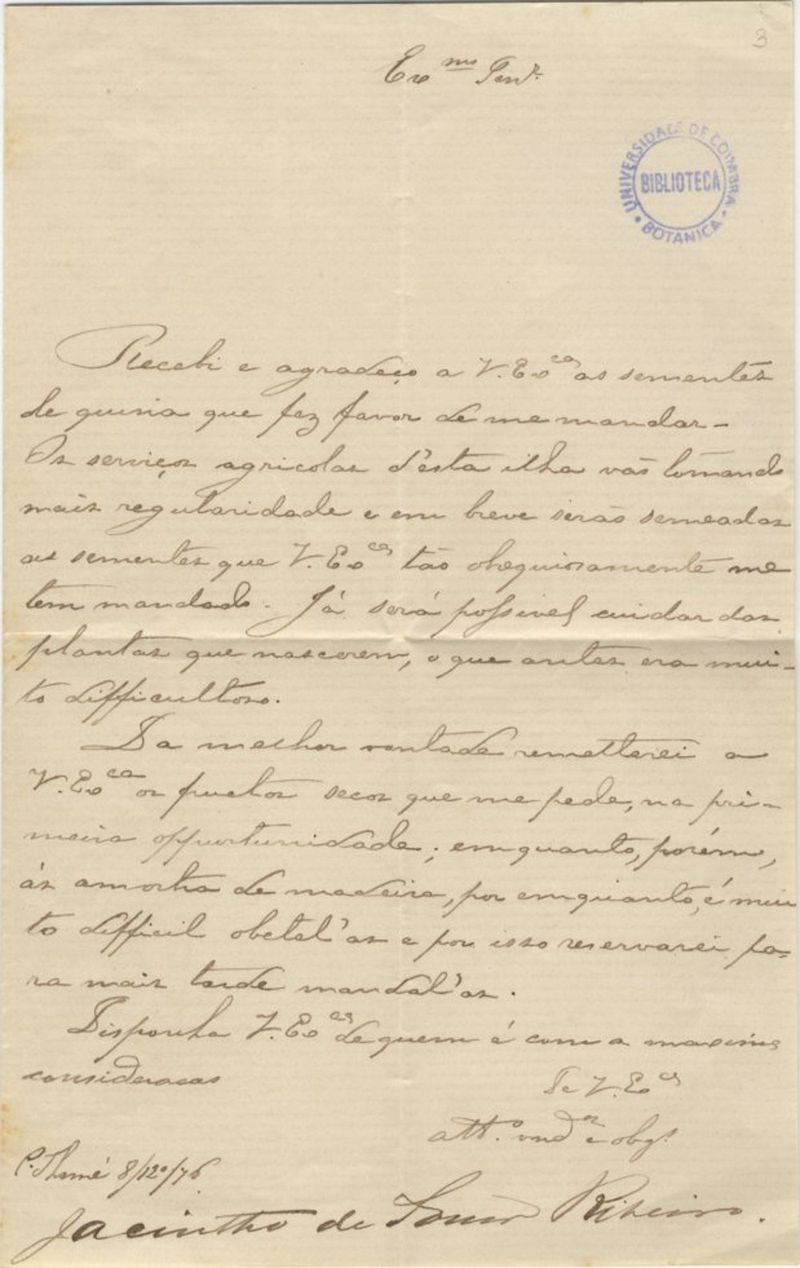 3
Ex.mo Senr.
UNIVERSIDADE DE COIMBRA
BIBLIOTECA
BOTANICA
Recebi e agradeço a V. Ex.cia as sementes
de quina que fez favor de me mandar.
Os serviços agricolas d'esta ilha vão tomando
mais regularidade e em breve serão semeadas
as sementes que V. Ex.cia tão obsequiosamente me
tem mandado. Já será possivel cuidar das
plantas que nascerem, o que antes era mui-
to difficultoso.
Da melhor vontade remetterei a
V. Ex.cia os fructos secos que me pede, na pri-
meira opportunidade; emquanto, porém,
ás amostra de madeira, por emquanto, é mui
to difficil obetel'as e por isso reservarei pa-
ra mais tarde mandal'as.
Disponha V. Ex.cia de quem é com a maxima
consideracao
De V. Ex.cia
att.o vnd.or e obg.o
S. Thomé 8/12º/76
Jacintho de Sousa Ribeiro.